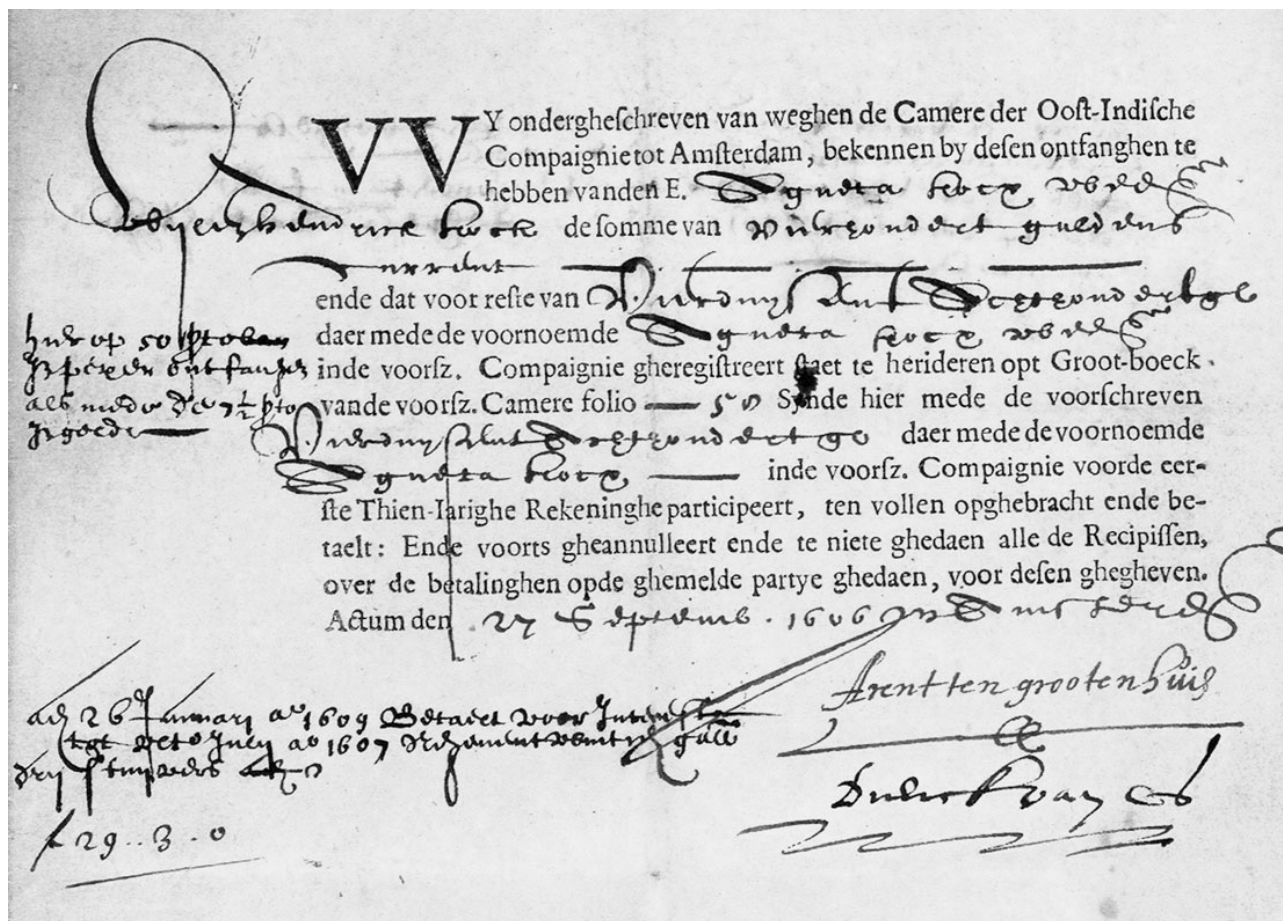 VVY ondergheschreven van weghen de Camere der Oost-Indische
Compaignie tot Amsterdam, bekennen by desen ontfanghen te
hebben vanden E. Agneta kocx
hendrick kock de somme van vierhondert guldens
Current
ende dat voor reste van
daer mede de voornoemde Agneta kocx
inde voorsz. Compaignie gheregistreert staet te herideren opt Groot-boeck
vande voorsz. Camere folio 50 Synde hier mede de voorschreven
daer mede de voornoemde
Agneta kocx inde voorsz. Compaignie voorde eer-
ste Thien-Iarighe Rekeninghe participeert, ten vollen opghebracht ende be-
taelt: Ende voorts gheannulleert ende te niete ghedaen alle de Recipissen,
over de betalinghen opde ghemelde partye ghedaen, voor desen ghegheven.
Actum den 27 Septemb. 1606
hier op 50
ontfangen
als mede de 7½
Arent ten grootenhuis
adj 26 Januari ao 1609 Betaelt voor Interest
July ao 1607
drij stuijvers
Dirck van Os
f 29..3.0